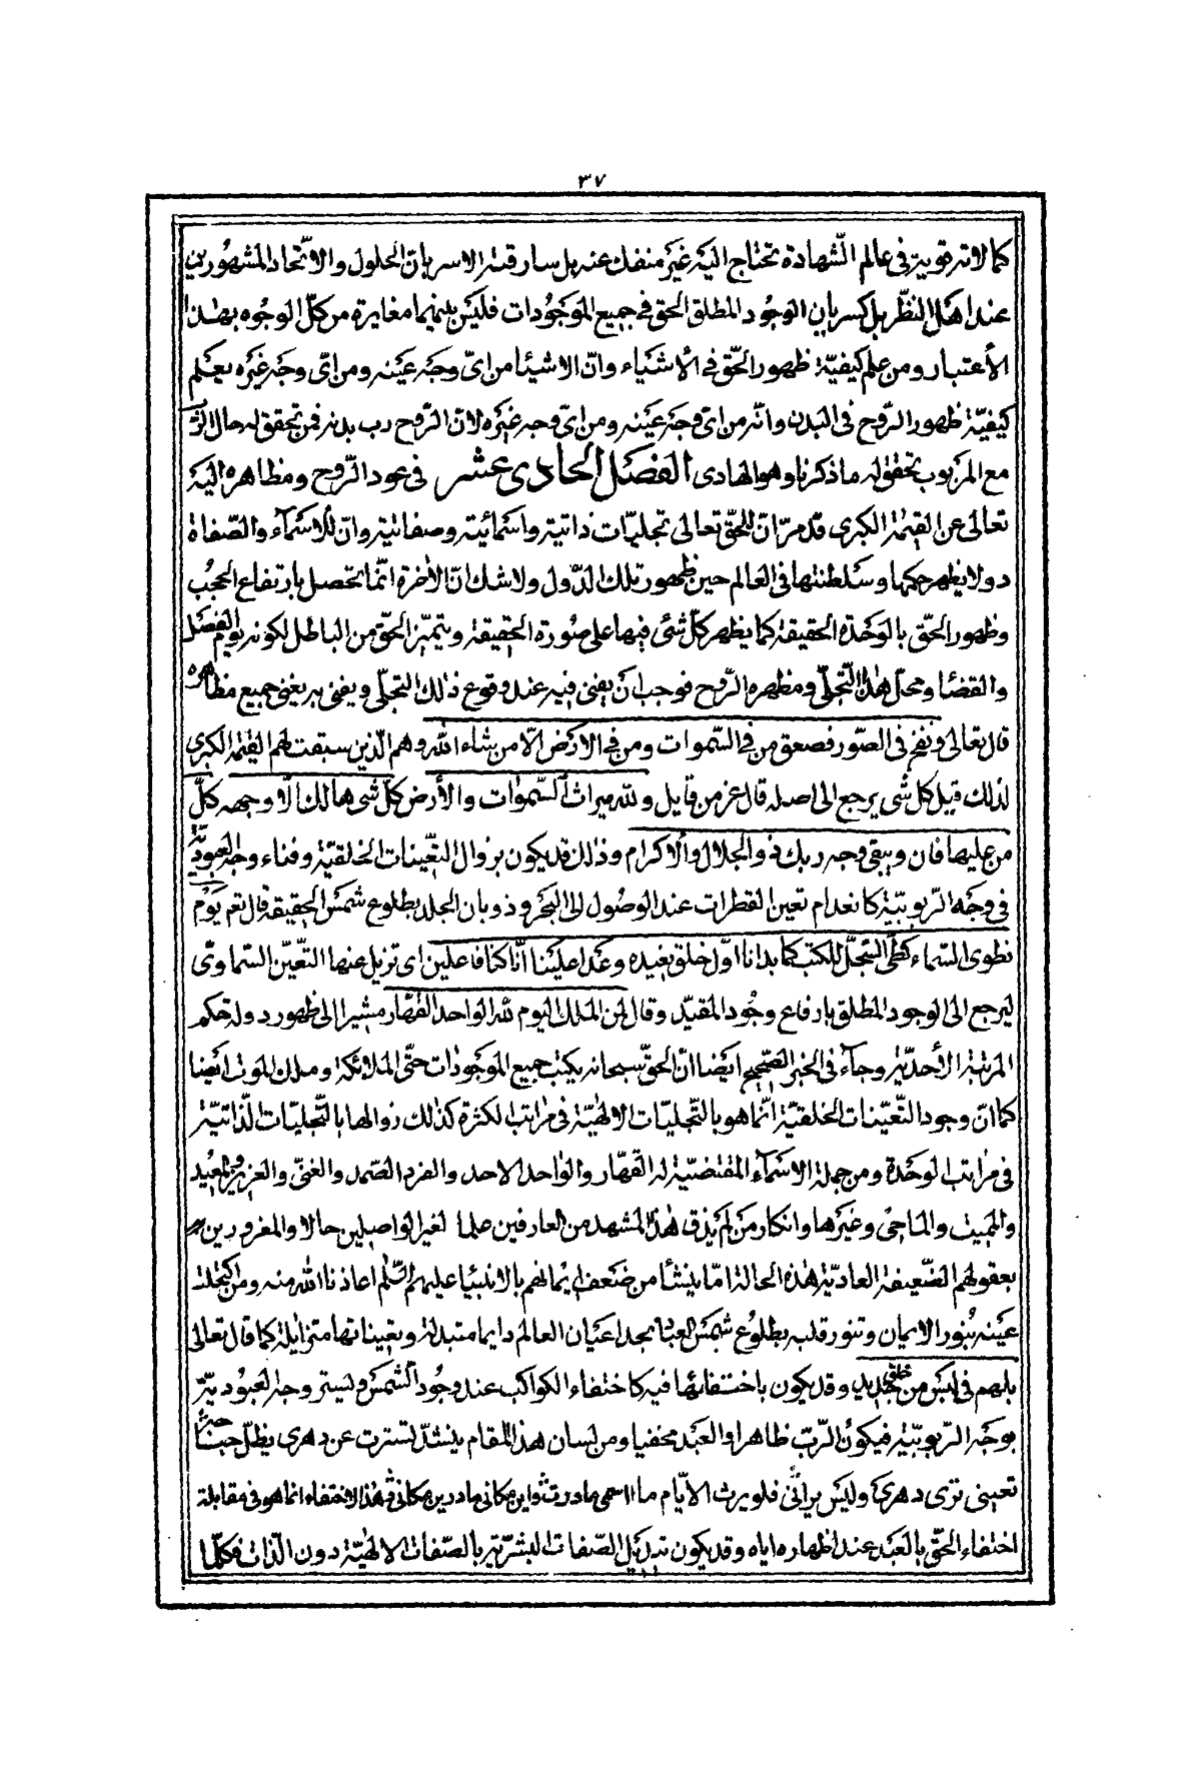 ٣٧
كمالاته وقوية فى عالم الشهادة تحتاج اليه غير منفك عنه بل سار فيه لا سريان الحلول والاتحاد المشهورين
عند اهل النظر بل كسريان الوجود المطلق الحق فى جميع الموجودات فليس بينهما مغايرة من كل الوجوه بهذا
الأعتبار ومن علم كيفية ظهور الحق فى الأشياء وان الاشيا من اى وجه عينه ومن اى وجه غيره يعلم
كيفية ظهور الروح فى البدن وانه من اى وجه عينه ومن اى وجه غيره لان الروح رب بدنه فمن تحقق له حال الرب
مع المربوب تحقق له ما ذكرنا وهو الهادى الفصل الحادى عشر فى عود الروح ومظاهره اليه
تعالى عن القيمة الكبرى قد مر ان للحق تعالى تجليات ذاتية واسمائية وصفاتية وان للاسماء والصفاة
دولا يظهر حكمها وسلطنتها فى العالم حين ظهور تلك الدول ولا شك ان الأخرة انما تحصل بارتفاع الحجب
وظهور الحق بالوحدة الحقيقة كما يظهر كل شئ فيها على صورة الحقيقة ويتميز الحق من الباطل لكونه يوم الفصل
والقضا ومحل هذا التجلى ومظهره الروح فوجب ان يفنى فيه عند وقوع ذلك التجلى ويفنى به يفنى جميع مظاهره
قال تعالى ونفخ فى الصور فصعق من فى السموات ومن فى الارض الا من شاء الله وهم الذين سبقت لهم القيمة الكبرى
لذلك قيل كل شى يرجع الى اصله قال عز من قايل ولله ميراث السموات والأرض كل شى هالك الا وجهه كل
من عليها فان ويبقى وجه ربك ذو الجلال والاكرام وذلك قد يكون بزوال التعينات الخلقية وفناء وجه العبودية
فى وجه الربوبية كانعدام تعين القطرات عند الوصول الى البحر وذوبان الجلد بطلوع شمس الحقيقة قال تعم يوم
نطوى السماء كطى السجل للكتب كما بدانا اول خلق نعيده وعدا علينا انا كنا فاعلين اى نزيل عنها التعين السماوى
ليرجع الى الوجود المطلق بارفاع وجود المقيد وقال لمن الملك اليوم لله الواحد القهار مشيرا الى ظهور دولة حكم
المرتبة الأحدية وجاء فى الخبر الصحيح ايضا ان الحق سبحانه يكتب جميع الموجودات حتى الملائكة وملك الموت ايضا
كما ان وجود التعينات الخلقية انما هو بالتجليات الالهية فى مراتب الكثرة كذلك زوالها بالتجليات الذاتية
فى مراتب الوحدة ومن جملة الاسماء المقتضية له القهار والواحد الاحد والفرد الصمد والغنى والعزيز والمعيد
والمميت والماحى وغيرها وانكار من لم يذق هذا المشهد من العارفين علما لغير الواصلين حالا والمغرورين
بعقولهم الضعيفة العادية هذه الحالة اما ينشأ من ضعف ايمانهم بالانبيا عليهم السلم اعاذنا الله منه ومن اكتحلت
عينه بنور الايمان وتنور قلبه بطلوع شمس العباد يجد اعيان العالم دايما متبدلة وتعيناتها متزايلة كما قال تعالى
بل هم فى لبس من خلق جديد وقد يكون باختفائها فيه كاختفاء الكواكب عند وجود الشمس وليستر وجه العبودية
بوجه الربوبية فيكون الرب ظاهرا والعبد مخفيا ومن لسان هذا المقام ينشد تسترت عن دهرى بظل جنابه
تعينى ترى دهرى وليس يرانى فلو يرث الايام ما اسمى ما درت واين مكانى ما درين مكانى هذا الاختفاء انما هو فى مقابلة
اختفاء الحق بالعبد عند اظهاره اياه وقد يكون تبديل الصفات البشرية بالصفات الالهية دون الذات فكلما